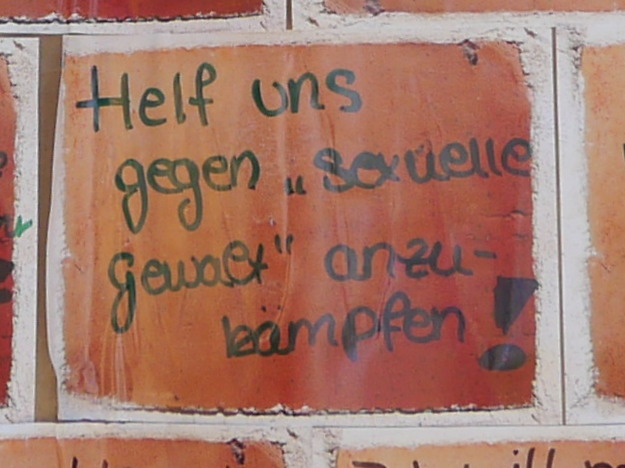 Helf uns
gegen „sexuelle
gewalt" anzu-
kämpfen!